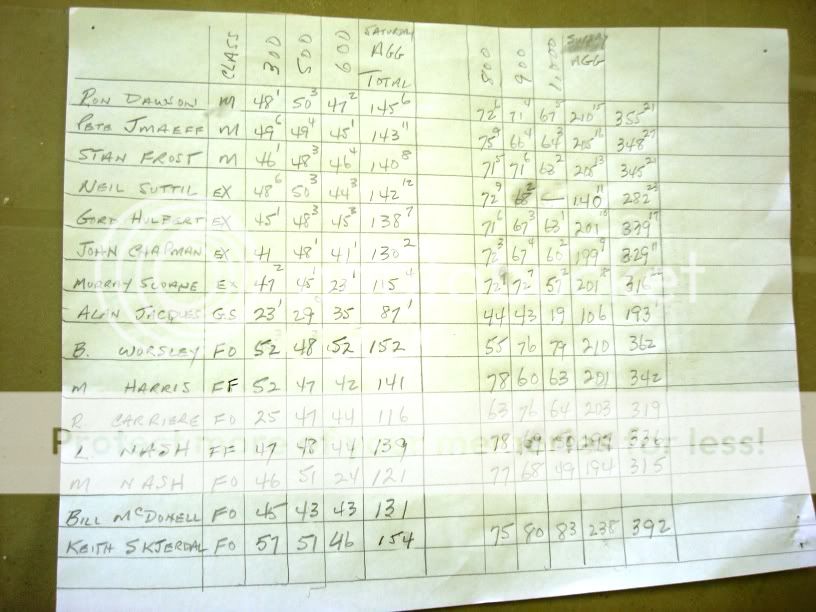 CLASS 300 500 600 SATURDAY AGG TOTAL 800 900 1,000 SUNDAY AGG
RON DAWSON M 48¹ 50³ 47² 145⁶ 72⁶ 71⁴ 67⁵ 210¹⁵ 355²¹
PETE JMAEFF M 49⁶ 49⁴ 45¹ 143¹¹ 75⁹ 66⁴ 64³ 205¹⁶ 348²⁷
STAN FROST M 46¹ 48³ 46⁴ 140⁸ 71⁵ 71⁶ 63² 205¹³ 345²¹
NEIL SUTTIL EX 48⁶ 50³ 44³ 142¹² 72⁹ 68² — 140¹¹ 282²³
GORD HULBERT EX 45¹ 48³ 45³ 138⁷ 71⁶ 67³ 63¹ 201¹⁰ 339¹⁷
JOHN CHAPMAN EX 41 48¹ 41¹ 130² 72³ 67⁴ 60² 199⁹ 329¹¹
MURRAY SLOANE EX 47² 45¹ 23¹ 115⁴ 72⁹ 72⁷ 57² 201¹⁸ 316²²
ALAN JACQUES G.S 23¹ 29⁰ 35 87¹ 44 43 19 106 193¹
B. WORSLEY FO 52 48 52 152 55 76 79 210 362
M HARRIS FF 52 47 42 141 78 60 63 201 342
R. CARRIERE FO 25 47 44 116 63 76 64 203 319
L NASH FF 47 48 44 139 78 69 336
M NASH FO 46 51 24 121 77 68 49 194 315
BILL McDONELL FO 45 43 43 131
KEITH SKJERDAL FO 57 51 46 154 75 80 83 238 392
Protect more of your memories for less!